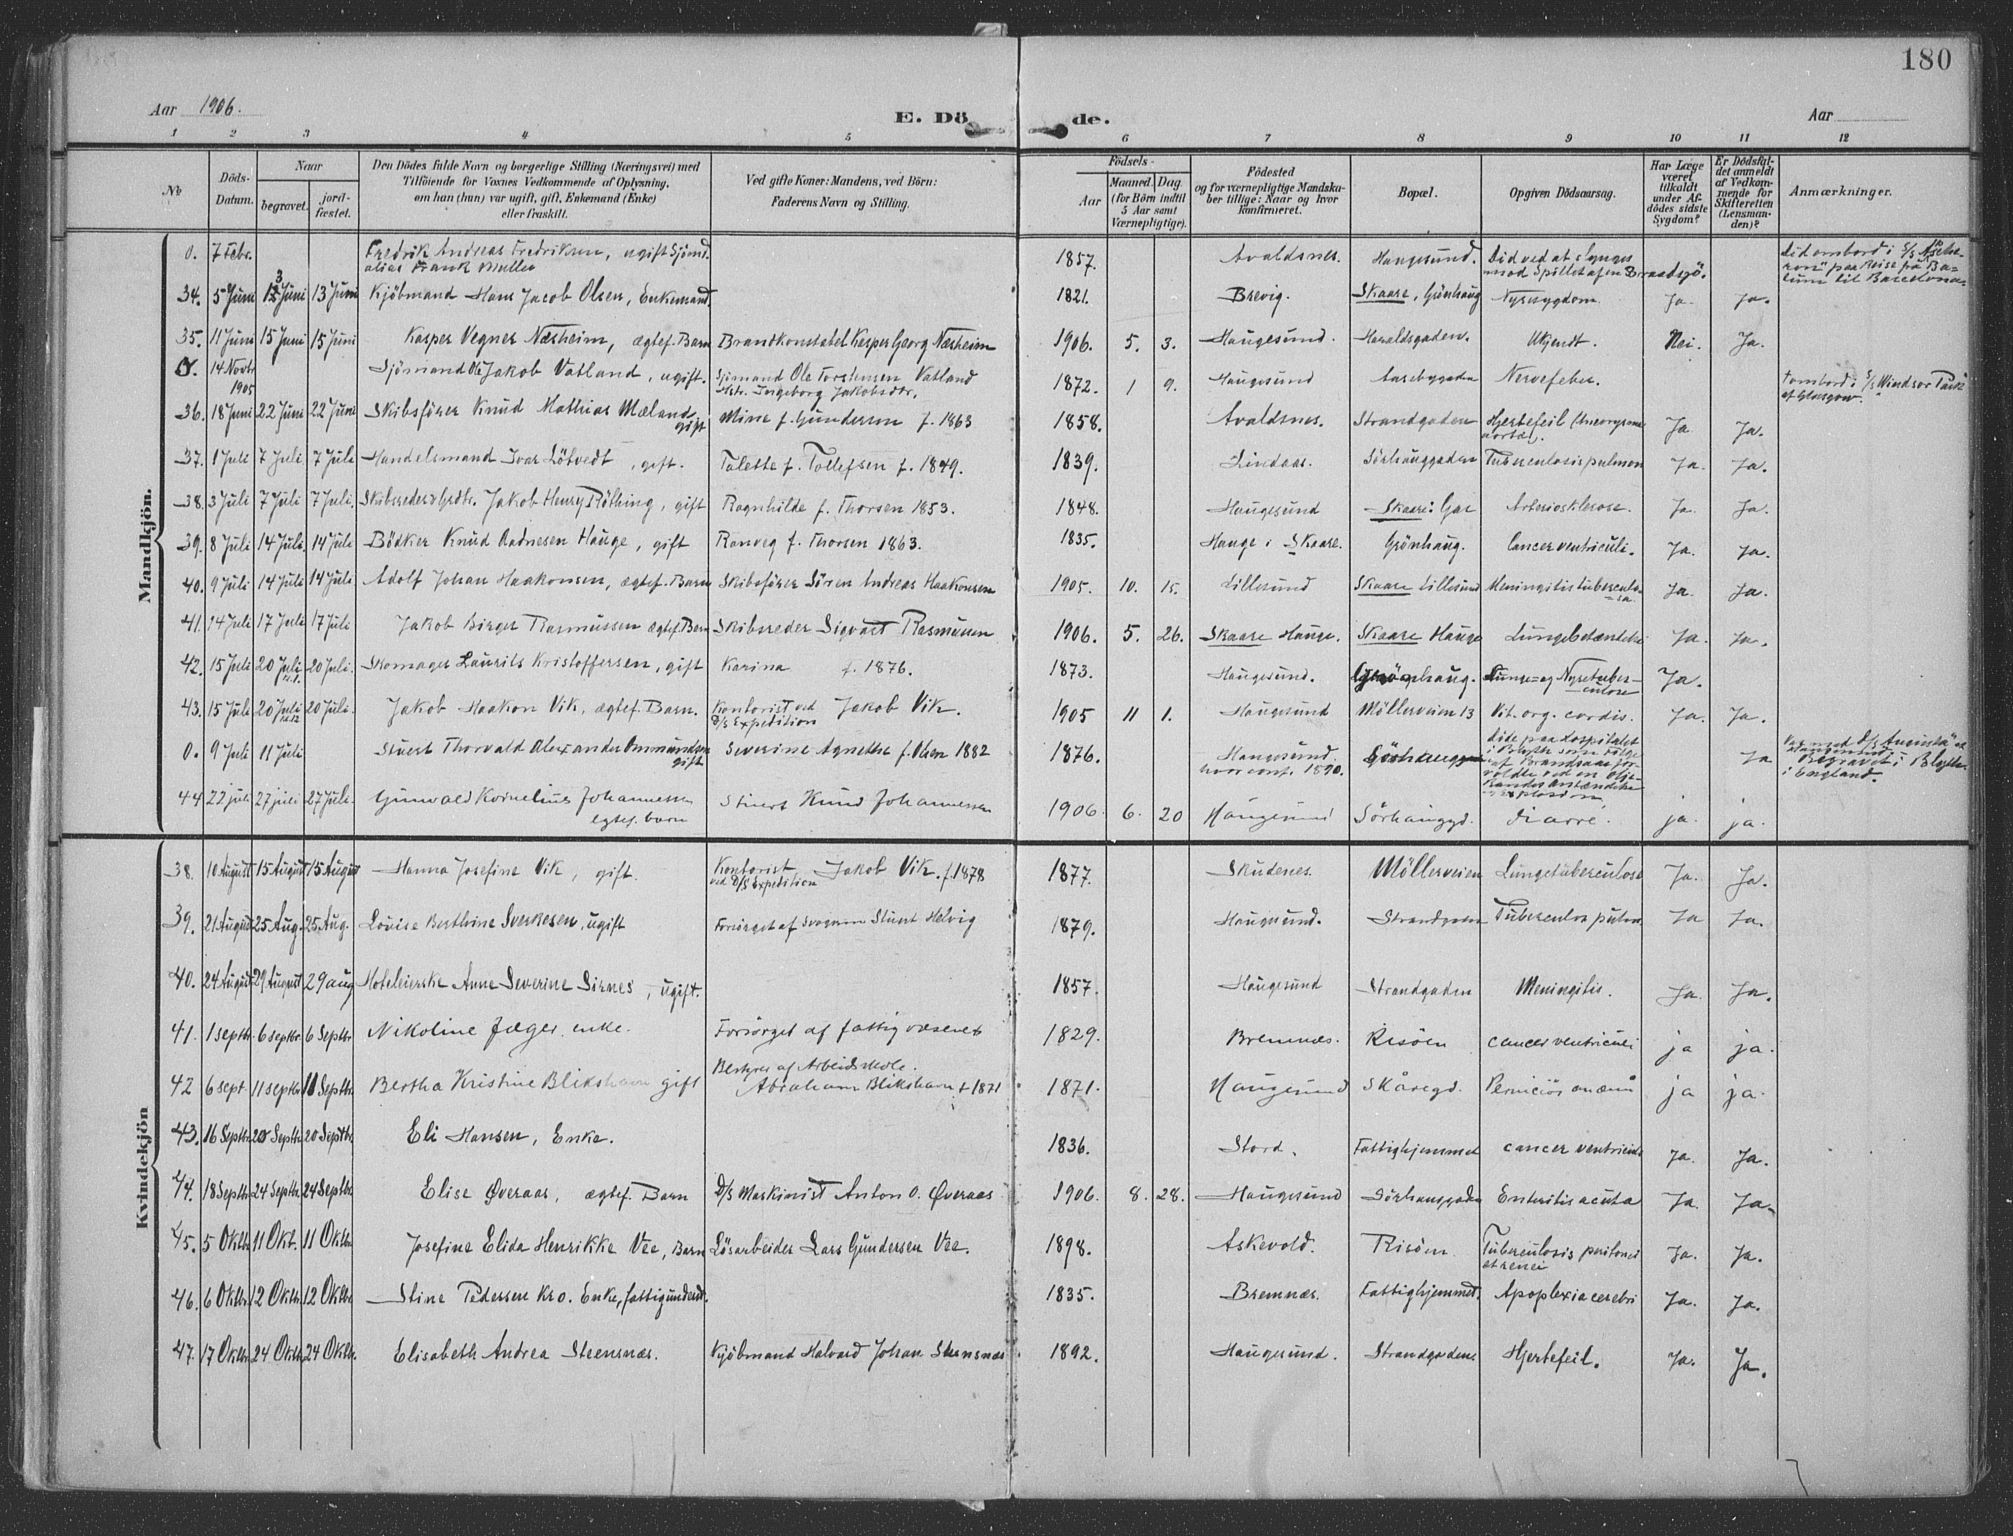 180
Aar 1906.
E. Dö de.
Aar
1 2 3 4 5 6 7 8 9 10 11 12
No
Döds-Datum.
Naar
begravet.
jordfæstet.
Den Dödes fulde Navn og borgerlige Stilling (Næringsvei) med Tilföiende for Voxnes Vedkommende af Oplysning, om han (hun) var ugift, gift, Enkemand (Enke) eller fraskilt.
Ved gifte Koner: Mandens, ved Börn: Faderens Navn og Stilling.
Födsels-
Aar
Maaned. Dag
(for Börn indtil 5 Aar samt Værnepligtige).
Födested og for værnepligtige Mandskaber tillige: Naar og hvor konfirmeret.
Bopæl.
Opgiven Dödsaarsag.
Har Læge været tilkaldt under Afdödes sidste Sygdom?
Er Dödsfaldet anmeldt af Vedkommende for Skifteretten (Lensmanden)?
Anmærkninger.
Mandkjön.
0. 7 Febr. Fredrik Andreas Fredriksen, ugift Sjömd. alias Frank Muller 1857. Avaldsnes. Haugesund. Död ved at slynges mod Spillet af en Braadsjö. Död ombord i S/S paa Reise fra til Barcelona
34. 5 Juni 13 Juni 13 Juni Kjöbmand Hans Jacob Olsen, Enkemand. 1821. Brevig. Skaare, Grönhaug Nyresygdom. Ja. Ja.
35. 11 Juni 15 Juni 15 Juni Kasper Vegner Næsheim, ægtef. Barn Brandkonstabel Kasper Georg Næsheim 1906. 5. 3. Haugesund. Haraldsgaden. Ukjendt. Nei. Ja.
0. 14 Novbr 1905 Sjömand Ole Jakob Vatland, ugift. Sjömand Ole Torstensen Vatland Hstr. Ingeborg Jakobsdtr. 1872. 1 9. Haugesund Aasebygaden Nervefeber. ombord i S/S Windsor Park af Glasgow.
36. 18 Juni 22 Juni 22 Juni Skibsförer Knud Mathias Mæland gift Mine f. Gunderson f. 1863 1858. Avaldsnes. Strandgaden Hjertefeil (Aneorysme aortæ). Ja. Ja.
37. 1 Juli 7 Juli 7 Juli Handelsmand Ivar Lötvedt, gift. Talette f. Tollefsen f. 1849. 1839. Lindaas. Sörhauggaden Tuberculosis pulmon Ja. Ja.
38. 3 Juli 7 Juli 7 Juli. Skibsreder Jakob Henry Röthing, gift Ragnhilde f. Thorsen 1853. 1848. Haugesund Skaare: Gar Arteriosklerose. Ja. Ja.
39. 8 Juli 14 Juli 14 Juli Bödker Knud Aadnesen Hauge, gift Ranveg f. Thorsen 1863. 1835. Hauge i Skaare. Grönhaug. Cancer ventriculi. Ja. Ja.
40. 9 Juli 14 Juli 14 Juli Adolf Johan Haakonsen, ægtef. Barn Skibsförer Sören Andreas Haakonsen 1905. 10. 15. Lillesund Skaare Lillesund Meningitis tuberculosa Ja. Ja.
41. 14 Juli 17 Juli 17 Juli Jakob Birger Rasmussen ægtef. Barn Skibsreder Sigvart Rasmussen 1906. 5. 26. Skaare Hauge. Skaare Hauge Lungebetændelse Ja. Ja.
42. 15 Juli 20 Juli 20 Juli. Skomager Laurits Kristoffersen, gift Karina f. 1876. 1873. Haugesund. Grönhaug. Lunge- og Nyretuberculose Ja.
43. 15 Juli 20 Juli 20 Juli. Jakob Haakon Vik, ægtef. Barn. Kontorist ved D/S Expedition Jakob Vik. 1905 11 1. Haugesund Möllerveien 13 Vit. org. cordis. Ja. Ja.
0. 9 Juli 11 Juli Stuert Thorvald Alexander Ommundsen gift Severine Agnethe f. Olsen 1882 1876. Haugesund. 1890. Döde paa Hospitalet i Blyth som Fölge af Brandsaar forvoldte ved en Ja Begravet i Blyth i England.
44 22 juli 27 juli 27 Juli. Gunvald Kornelius Johannessen egtef. barn Stuert Knud Johannessen 1906 6. 20 Haugesund Sörhauggd. Diarré. ja. ja.
Kvindekjön
38. 10 August 15 August 15 August Hanna Josefine Vik, gift. Kontorist ved D/S Expedition Jakob Vik. f 1878 1877. Skudenes. Möllerveien Lungetuberculose Ja. Ja.
39. 21 August 25 Aug. 25 Aug. Lovise Berthine Sverkesen, ugift Forsörget af Svogeren Stuert Helvig 1879. Haugesund. Strandgaden Tuberculos pulm. Ja Ja.
40. 24 August 29 August 29 aug Hoteleierske Anne Severine Sirnes, ugift. 1857. Haugesund Strandgaden Meningitis. Ja. Ja.
41. 1 septbr. 6 septbr 6 Septbr. Nikoline Jæger enke. Forsörget af fattigvæsenet 1829. Bremnæs. Risöen cancer ventriculi ja ja.
42 6 sept 11 septbr 11 Septbr. Bertha Kristine Blikshavn gift Bestyrer af Arbeidsskole. Abraham Blikshavn f 1871 1871. Haugesund Skåregd. Perniciös anæmi ja ja.
43. 16 Septbr. 20 Septbr. 20 Septbr. Eli Hansen, Enke. 1836. Stord. Fattighjemmet cancer ventriculi Ja. Ja.
44. 18 Septbr 24 Septbr. 24 Septbr. Elise Øveraas, ægtef. Barn D/S Maskinist Anton O. Øveraas 1906. 8. 28. Haugesund Sörhauggaden Enteritis acuta Ja. Ja.
45. 5 Oktbr. 11 Okt. 11 Oktbr. Josefine Elida Henrikke Vee, Barn Lösarbeider Lars Gundersen Vee. 1898. Askevold. Risöen. Tuberculosis peritonei et renei Ja. Ja.
46. 6 Oktbr. 12 Oktbr. 12 Oktbr. Stine Pedersen Kro. Enke, fattigunderst. 1835. Bremnæs. Fattighjemmet. Apoplexia cerebri Ja. Ja.
47. 17 Oktbr. 24 Oktbr. 24 Oktbr. Elisabeth Andrea Steensnæs. Kjöbmand Halvard Johan Stensnæs 1892. Haugesund. Strandgadens Hjertefeil. Ja. Ja.